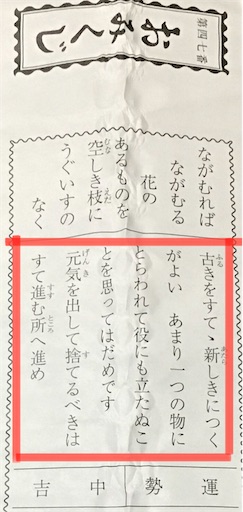 第四七番
おみくじ
ながむれば
ながむる
花の
あるものを
空しき枝に
うぐいすの
なく
古きをすて、新しきにつく
がよい あまり一つの物に
とらわれて役にも立たぬこ
とを思ってはだめです
元気を出して捨てるべきは
すて進む所へ進め
運勢中吉